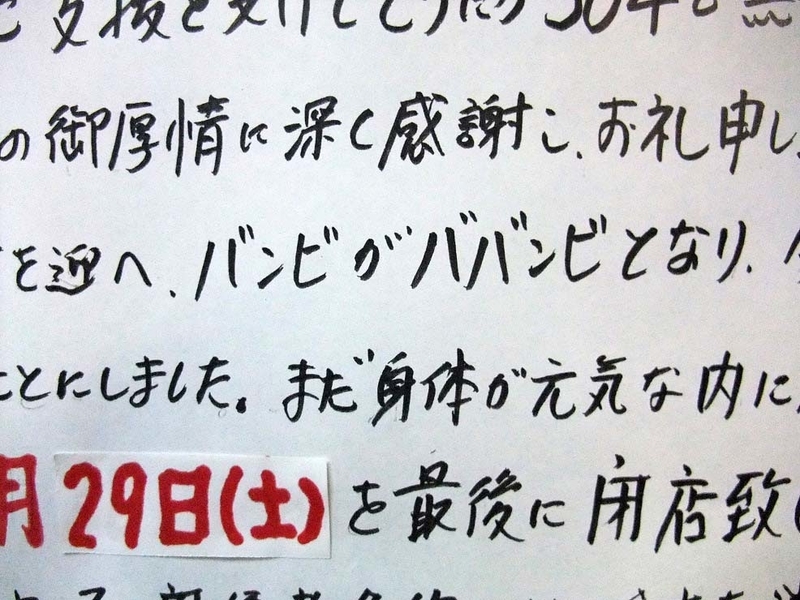 ご支援を受けてとうに50年も無
の御厚情に深く感謝し、お礼申し
を迎へ、バンビがババンビとなり、
ことにしました。まだ身体が元気な内に
月29日(土)を最後に閉店致し